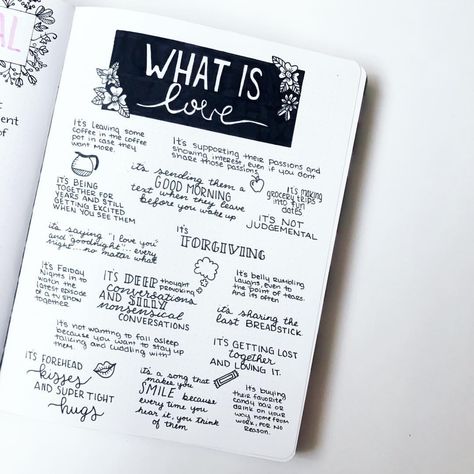 AL
t
of
WHAT IS
love
It's leaving some
coffee in the coffee
pot in case they
want more.
It's supporting their passions and
showing interest, even if you don't
share those passions
it's sending them a
GOOD MORNING
text when they leave
before you wake up
It's making
grocery trips
into fun
dates
It's BEING
TOGETHER FOR
YEARS AND STILL
GETTING EXCITED
WHEN YOU SEE THEM
IT'S NOT
JUDGEMENTAL
it's saying "I love you"
and "goodnight"... every
night... no matter what
IT's
FORGIVING
It's Friday
Nights in to
watch the
latest episode
of a tv show
together
IT'S DEEP thought
provoking
conversations
AND SILLY
nonsensical
CONVERSATIONS
It's belly rumbling
laughs, even to
the point of tears.
And its often
it's sharing the
last BREADSTICK.
It's not wanting to fall asleep
because you want to stay up
talking and cuddling with them
IT'S GETTING LOST
together
AND LOVING IT.
ITS FOREHEAD
kisses
AND SUPER TIGHT
hugs
it's a song that
makes you
SMILE because
every time you
hear it, you think
of them
It's buying
their favorite
candy bar or
drink on your
way home from
work, FOR NO
REASON.